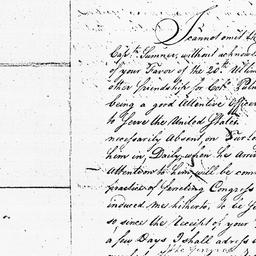 I cannot omit
Capt. Sumner, without acknow
of your Favor of the 20th Ultim
other Friendship for Col.
being a good Attentive Officer
to serve the United States
necessarily Absent on Furlo
him in Daily, when he
Attentions to him will be com
practice of Congress
induced me hitherto, to be
so since the Receipt of your
a few Days I shall adress
the Congress